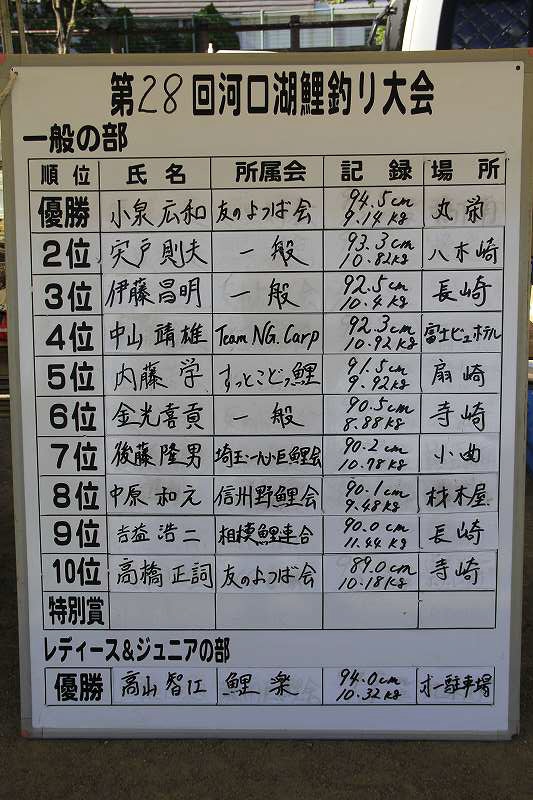 第28回河口湖鯉釣り大会
一般の部
順位 氏名 所属会 記録 場所
優勝 小泉広和 友のよつば会 94.5cm 9.14kg 丸栄
2位 宍戸則夫 一般 93.3cm 10.82kg 八木崎
3位 伊藤昌明 一般 92.5cm 10.4kg 長崎
4位 中山靖雄 Team NG.Carp 92.3cm 10.92kg 富士ビューホテル
5位 内藤学 すっとこどっ鯉 91.5cm 9.92kg 扇崎
6位 金光喜貢 一般 90.5cm 8.88kg 寺崎
7位 後藤隆男 巨鯉会 90.2cm 10.78kg 小曲
8位 中原和元 信州野鯉会 90.1cm 9.48kg 材木屋
9位 吉益浩二 相模鯉連合 90.0cm 11.44kg 長崎
10位 高橋正詞 友のよつば会 89.0cm 10.18kg 寺崎
特別賞
レディース&ジュニアの部
優勝 高山智江 鯉楽 94.0cm 10.32kg 才一駐車場